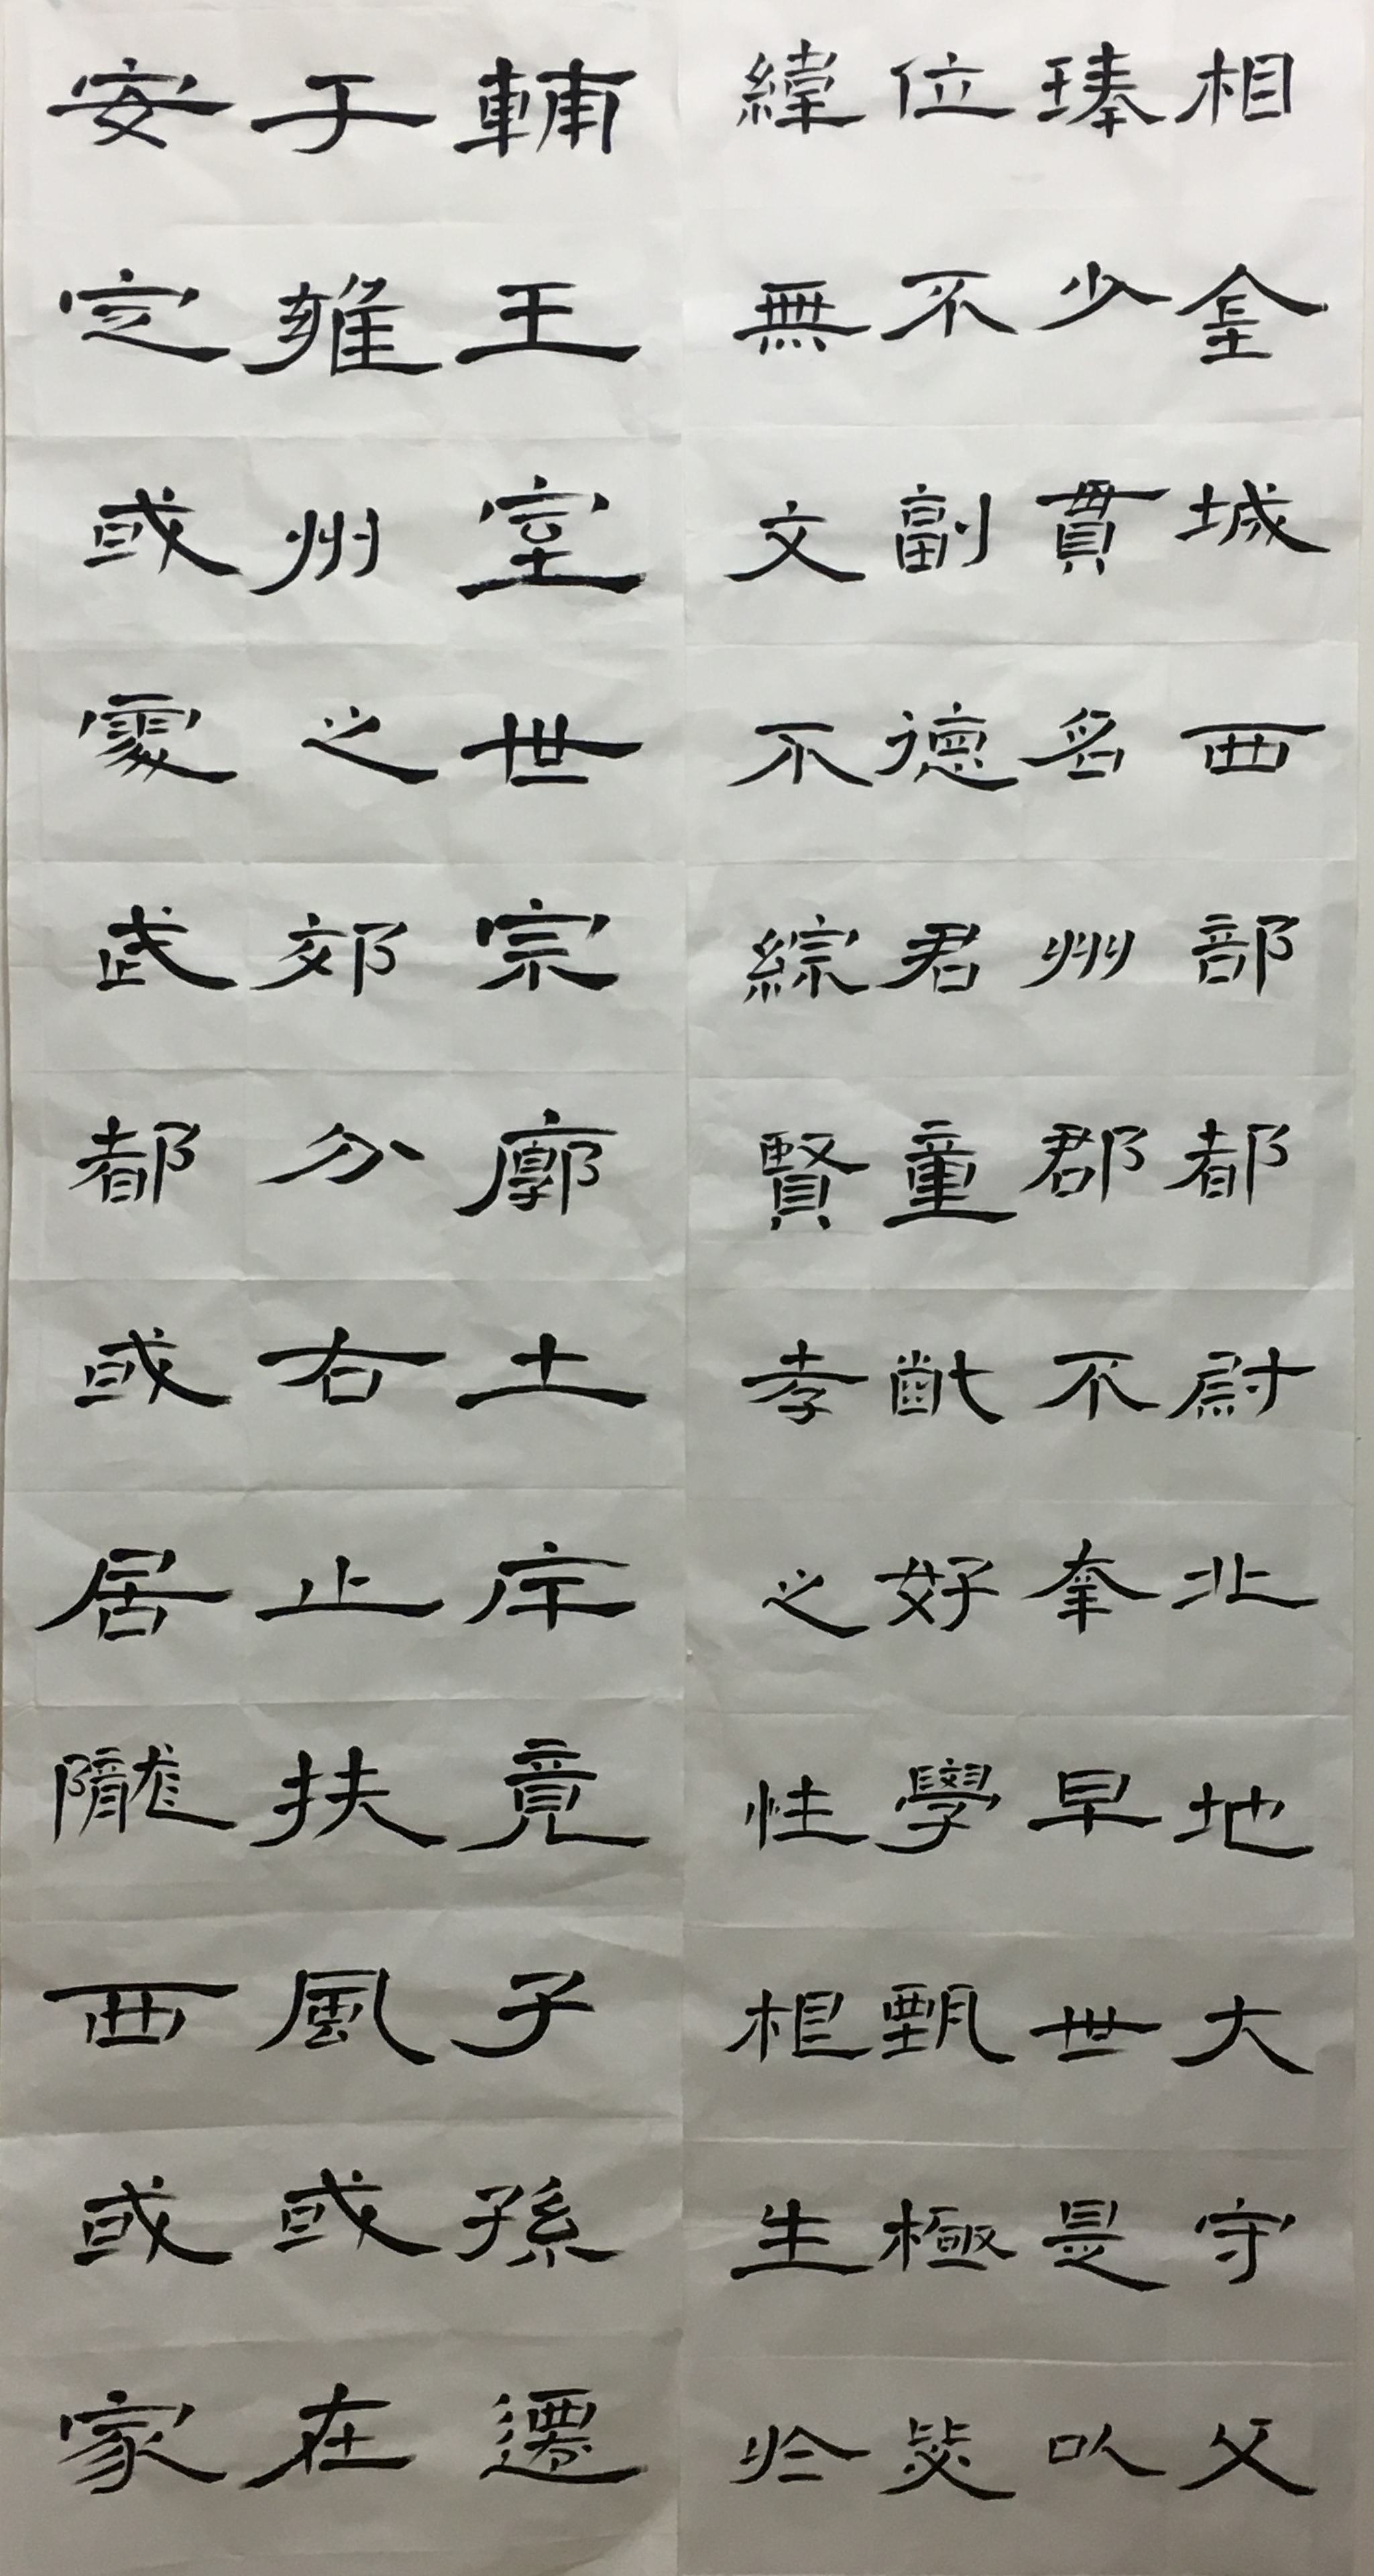 相金城西部都尉北地大守父
琫少貫名州郡不幸早世是以
位不副德君童齔好學甄極毖
緯無文不綜賢孝之性根生於
輔王室世宗廓土斥竟子孫遷
于雍州之郊分右止扶風或在
安定或處武都或居隴西或家